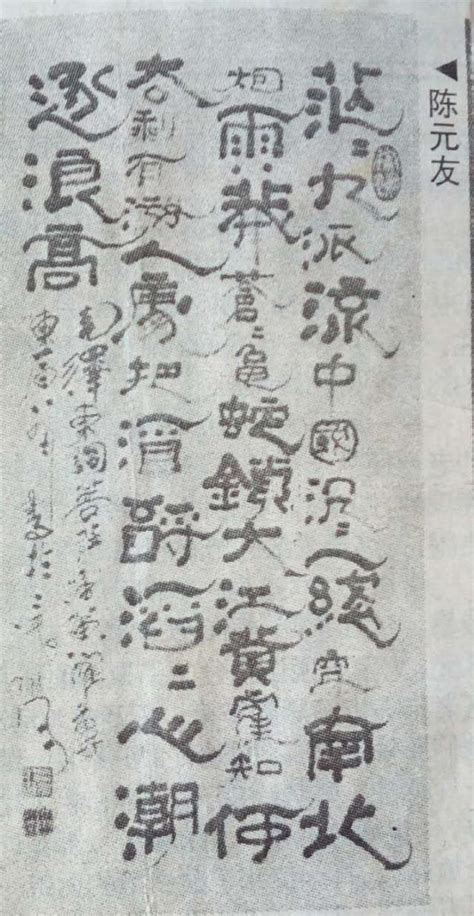 ◀陈元友
茫〻九派流中國沉〻一綫穿南北
烟雨莽蒼〻龜蛇鎖大江黃鶴知何
去剩有游人處把酒酹滔〻心潮
逐浪高
毛澤東詞菩薩蠻黃鶴樓